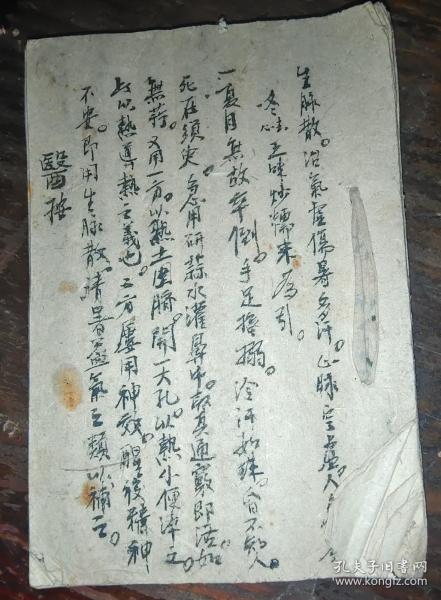 生脉散。治氣虛傷暑多汗。六脉空虛。人
冬 五味炒糯米為引。
一夏月無故卒倒。手足搐搦。冷汗如珠。昏不知人。
死在須臾。急用研蒜水灌鼻中。其通竅即活。如
無蒜。又用一方。以熱土圍臍。開一大孔。以熱小便淬之。
此以熱導熱之義也。二方屡用神效。醒後精神
不安。即用生脉散。清暑益氣之類以補之。
醫按
孔夫子旧书网
www.kongfz.com